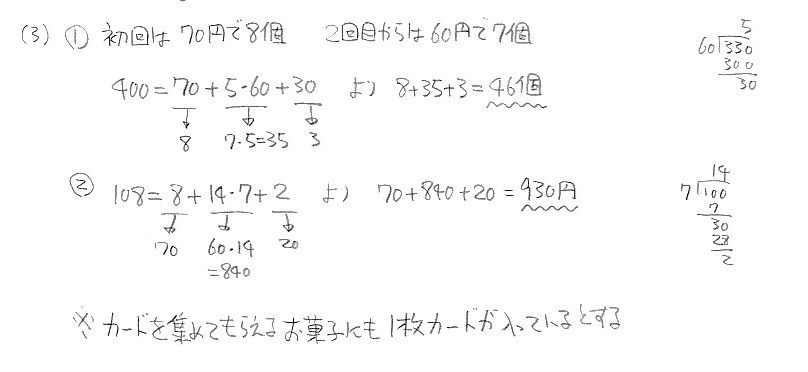 (3) ① 初回は 70円で8個 2回目からは60円で7個
400 = 70 + 5・60 + 30 より 8+35+3 = 46個
8 7・5=35 3
5
60)330
300
30
② 108 = 8 + 14・7 + 2 より 70+840+20 = 930円
70 60・14 20
=840
14
7)100
7
30
28
2
※ カードを集めてもらえるお菓子にも1枚カードが入っているとする